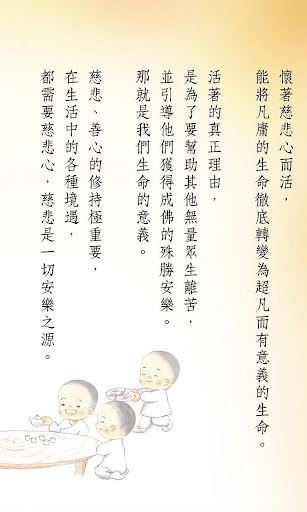 懷著慈悲心而活，
能將凡庸的生命徹底轉變為超凡而有意義的生命。
活著的真正理由，
是為了要幫助其他無量眾生離苦，
並引導他們獲得成佛的殊勝安樂，
那就是我們生命的意義。
慈悲、善心的修持極重要，
在生活中的各種境遇，
都需要慈悲心，慈悲是一切安樂之源。